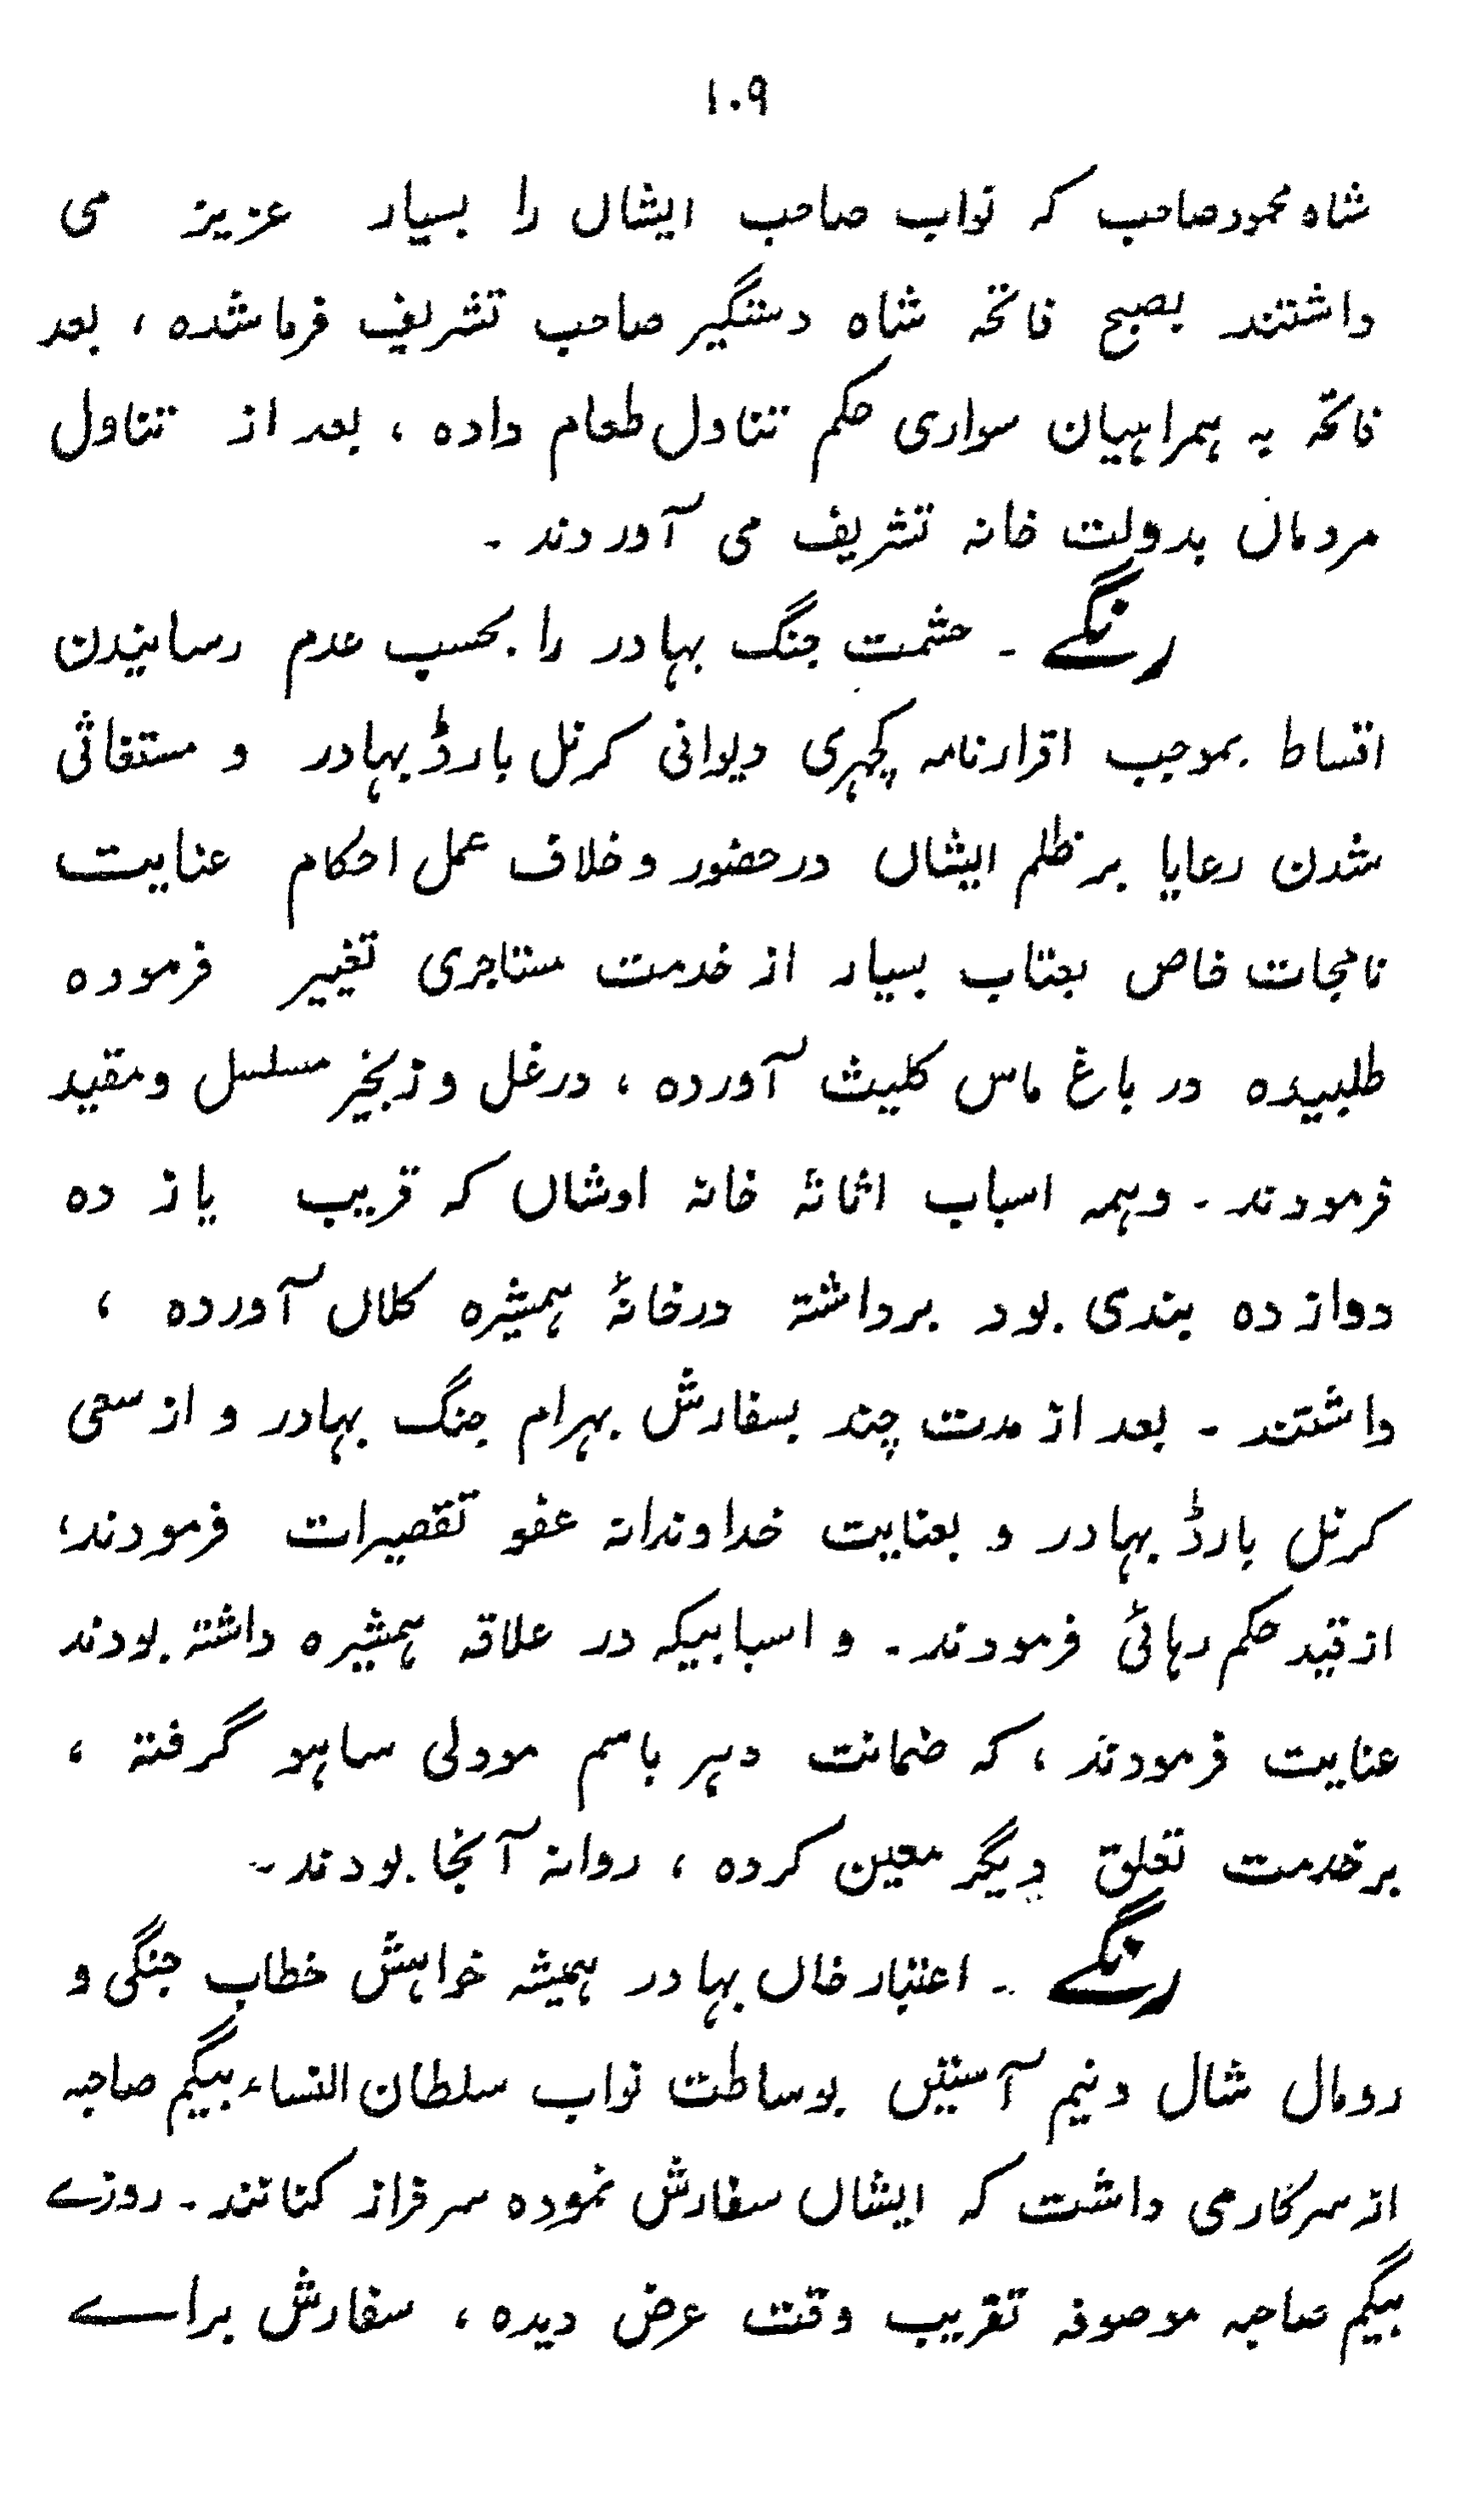 ۱۰۹
شاہ محمود صاحب کہ نواب صاحب ایشاں را بسیار عزیز می
داشتند بصبح فاتحہ شاہ دستگیر صاحب تشریف فرما شدہ ، بعد
فاتحہ بہ ہمراہیان سواری حکم تناول طعام دادہ ، بعد از تناول
مردماں بدولت خانہ تشریف می آوردند ۔
رنگے ۔ حشمت جنگ بہادر را بحسب عدم رسانیدن
اقساط بموجب اقرارنامہ کچہری دیوانی کرنل بارڈ بہادر و مستغاثی
شدن رعایا بر ظلم ایشاں در حضور و خلاف عمل احکام عنایت
نامجات خاص بعتاب بسیار از خدمت مستاجری تغییر فرمودہ
طلبیدہ در باغ ماس کلیث آوردہ ، در غل و زنجیر مسلسل و مقید
فرمودند ۔ وہمہ اسباب اثاثۂ خانہ اوشاں کہ قریب یاز دہ
دوازدہ بندی بود برداشتہ درخانۂ ہمشیرہ کلاں آوردہ ،
داشتند ۔ بعد از مدت چند بسفارش بہرام جنگ بہادر و از سعی
کرنل بارڈ بہادر و بعنایت خداوندانہ عفو تقصیرات فرمودند،
از قید حکم رہائی فرمودند ۔ و اسبابیکہ در علاقہ ہمشیرہ داشتہ بودند
عنایت فرمودند ، کہ ضمانت دہر باسم مودلی ساہو گرفتہ ،
بر خدمت تعلق دیگر معین کردہ ، روانہ آنجا بودند ۔
رنگے ۔ اعتبار خاں بہادر ہمیشہ خواہش خطاب جنگی و
رومال شال ونیم آستیں بوساطت نواب سلطان النساء بیگم صاحبہ
از سرکار می داشت کہ ایشاں سفارش نمودہ سرفراز کنانند ۔ روزے
بیگم صاحبہ موصوفہ تقریب وقت عرض دیدہ ، سفارش براے